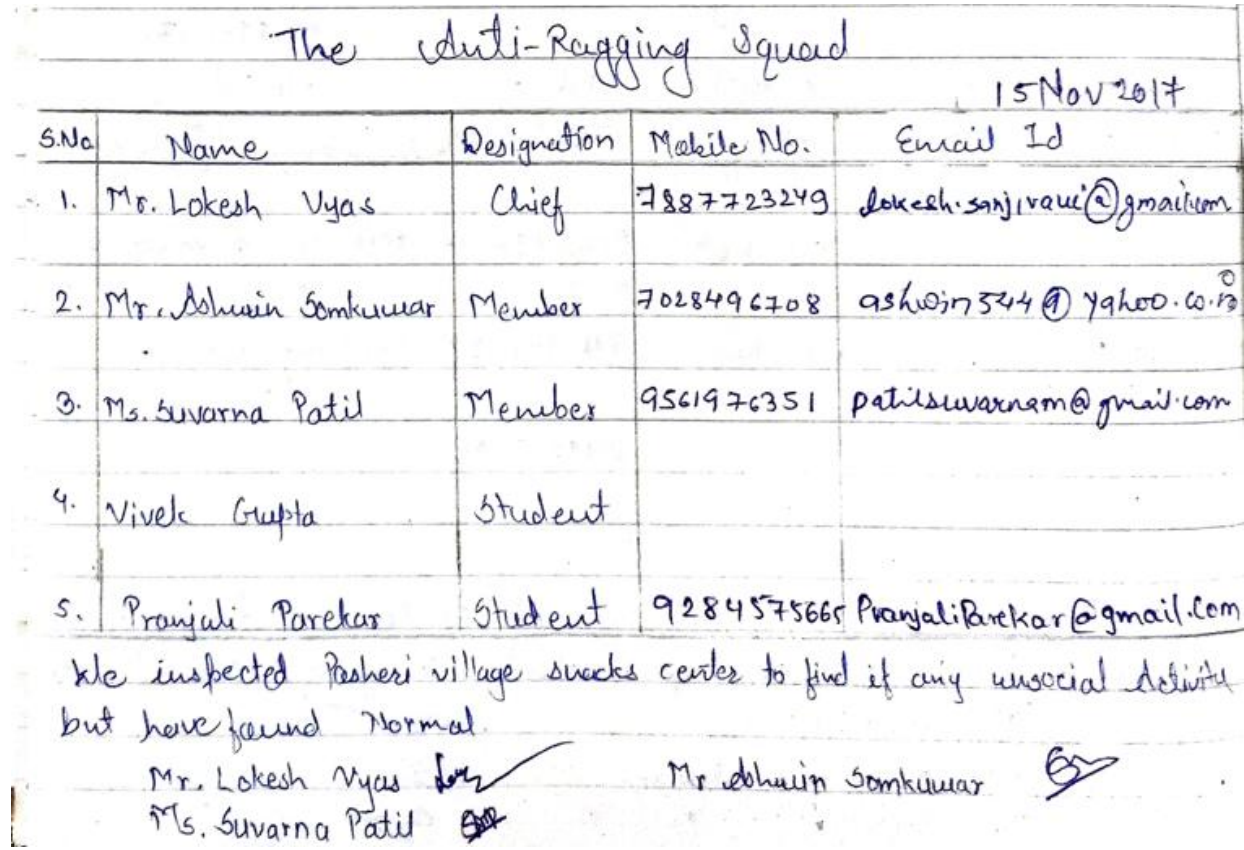 The Anti-Ragging Squad
15 Nov 2017
S.No Name Designation Mobile No. Email Id
1. Mr. Lokesh Vyas Chief 7887723249 lokesh.sanjivani@gmail.com
2. Mr. Ashwin Somkuwar Member 7028496708 ashwin544@yahoo.co.in
3. Ms. Suvarna Patil Member 9561976351 patilsuvarnam@gmail.com
4. Vivek Gupta Student
5. Pranjali Parekar Student 9284575665 PranjaliParekar@gmail.com
We inspected Pasheri village snacks center to find if any unsocial Activity
but have found Normal.
Mr. Lokesh Vyas Mr Ashwin Somkuwar
Ms. Suvarna Patil